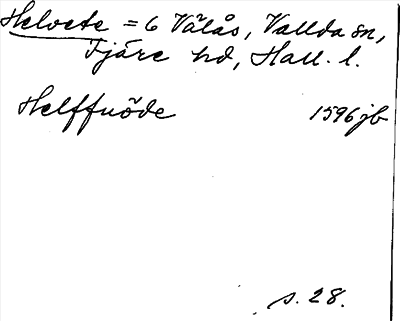 Helvete = 6 Vålås, Vallda sn,
Fjäre hd, Hall. l.
Helffuöde 1596 jb
s. 28.